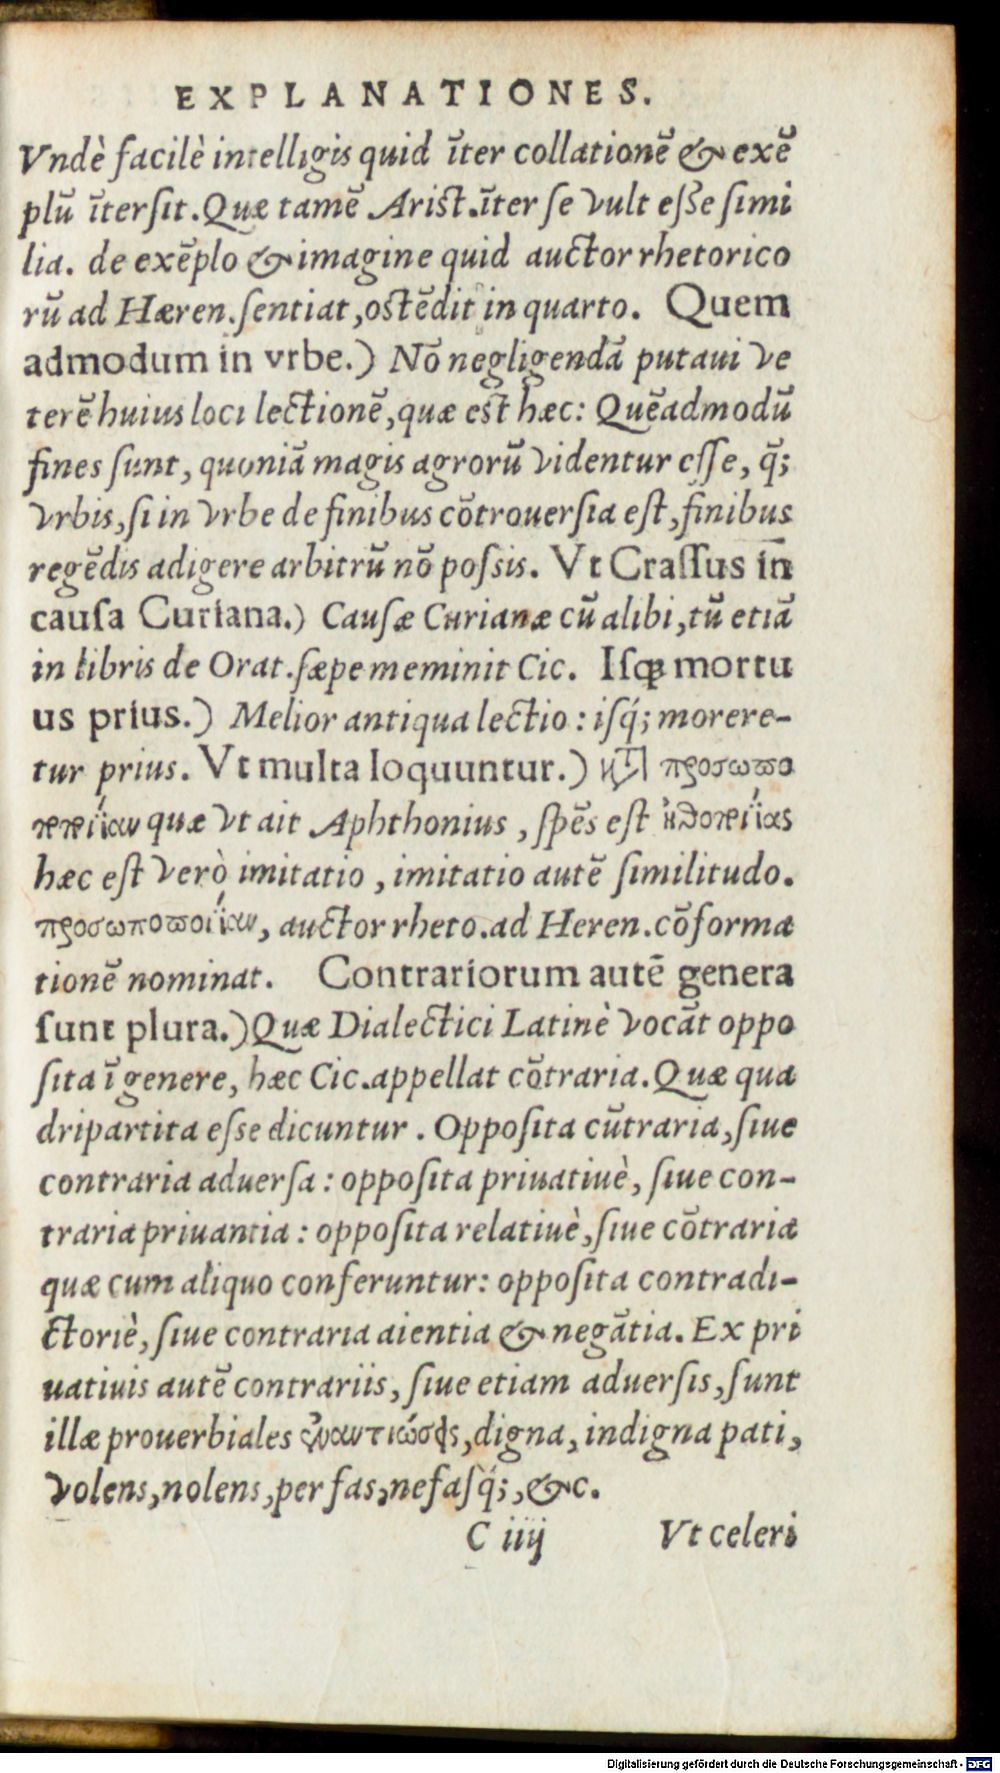 EXPLANATIONES.
Vndè facilè intelligis quid īter collationē & exē
plū īter sit. Quæ tamē Arist. īter se vult eſſe ſimi
lia. de exēplo & imagine quid auctor rhetorico
rū ad Hæren. ſentiat, oſtēdit in quarto. Quem
admodum in vrbe.) Nō negligendā putaui ve
terē huius loci lectionē, quæ est hæc: Quēadmodū
fines ſunt, quoniā magis agrorū videntur eſſe, q̃;
vrbis, ſi in vrbe de finibus cōtrouerſia eſt, finibus
regēdis adigere arbitrū nō poſsis. Vt Craſſus in̄
cauſa Curiana.) Cauſæ Curianæ cū alibi, tū etiā
in libris de Orat. ſæpe meminit Cic. Iſq; mortu
us prius.) Melior antiqua lectio: iſq́; morere-
tur prius. Vt multa loquuntur.) κτ̀ προσωπο
ποιίαν quæ vt ait Aphthonius, ſpēs eſt ἠθοποιίας
hæc eſt verò imitatio, imitatio autē ſimilitudo.
προσωποποιίαν, auctor rheto. ad Heren. cōforma
tionē nominat. Contrariorum autē genera
ſunt plura.) Quæ Dialectici Latinè vocāt oppo
ſita ī genere, hæc Cic. appellat cōtraria. Quæ qua
dripartita eſse dicuntur. Oppoſita cūtraria, ſiue
contraria aduerſa: oppoſita priuatiuè, ſiue con-
traria priuantia: oppoſita relatiuè, ſiue cōtraria
quæ cum aliquo conferuntur: oppoſita contradi-
ctoriè, ſiue contraria aientia & negātia. Ex pri
uatiuis autē contrariis, ſiue etiam aduerſis, ſunt
illæ prouerbiales ἐναντιώσεις, digna, indigna pati,
volens, nolens, per fas, nefaſq́;, &c.
C iiij Vt celeri
Digitalisierung gefördert durch die Deutsche Forschungsgemeinschaft - DFG